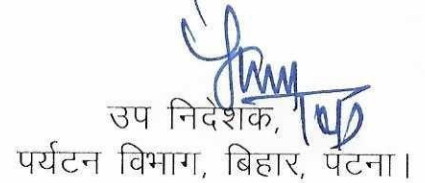 उप निदेशक,
पर्यटन विभाग, बिहार, पटना।